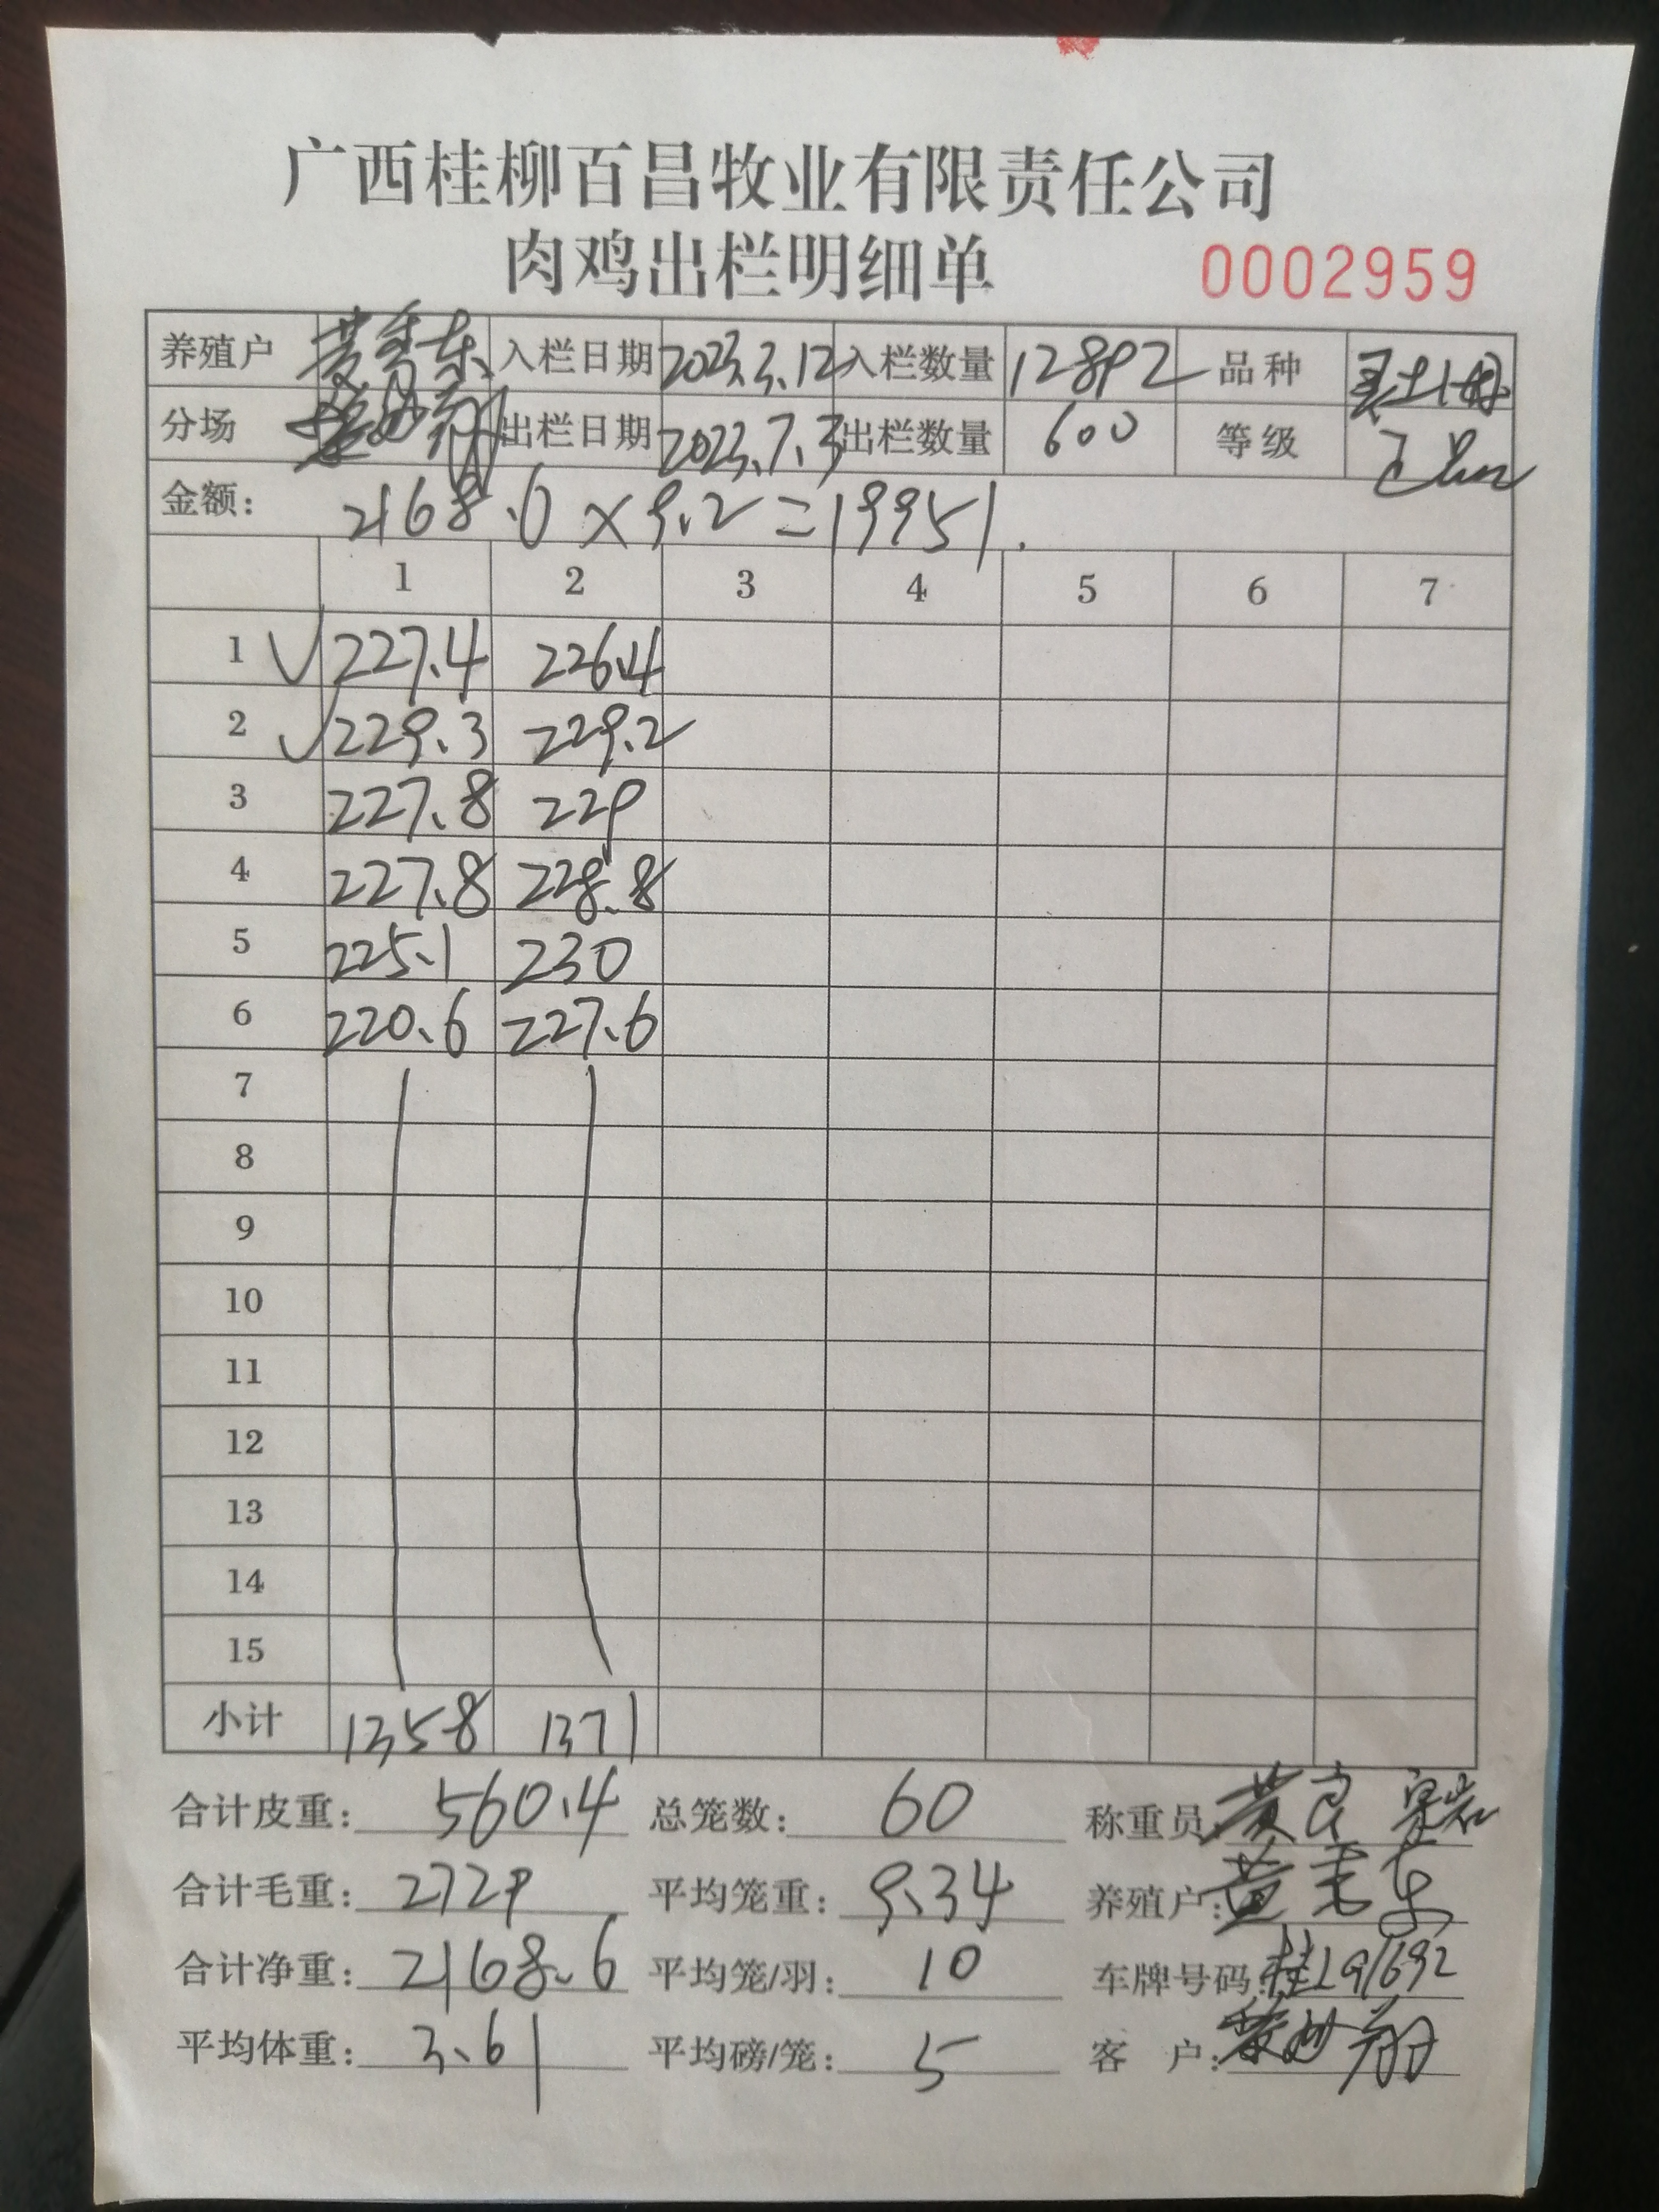 广西桂柳百昌牧业有限责任公司
肉鸡出栏明细单 0002959
养殖户 入栏日期 2023.3.12 入栏数量 12892 品种
分场 出栏日期 2023.7.3 出栏数量 600 等级
金额: 2168.6 × 9.2 = 19951.
1 2 3 4 5 6 7
1 227.4 226.4
2 229.3 229.2
3 227.8 229
4 227.8 228.8
5 225.1 230
6 220.6 227.6
7
8
9
10
11
12
13
14
15
小计 1358 1371
合计皮重: 560.4 总笼数: 60 称重员: 黄
合计毛重: 2729 平均笼重: 9.34 养殖户: 黄秀东
合计净重: 2168.6 平均笼/羽: 10 车牌号码: 桂L91692
平均体重: 3.61 平均磅/笼: 5 客 户: